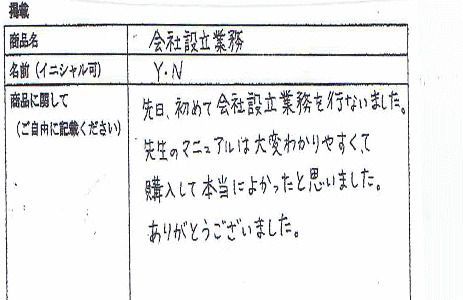 掲載
商品名 会社設立業務
名前(イニシャル可) Y・N
商品に関して
(ご自由に記載ください)
先日、初めて会社設立業務を行ないました。
先生のマニュアルは大変わかりやすくて、
購入して本当によかったと思いました。
ありがとうございました。